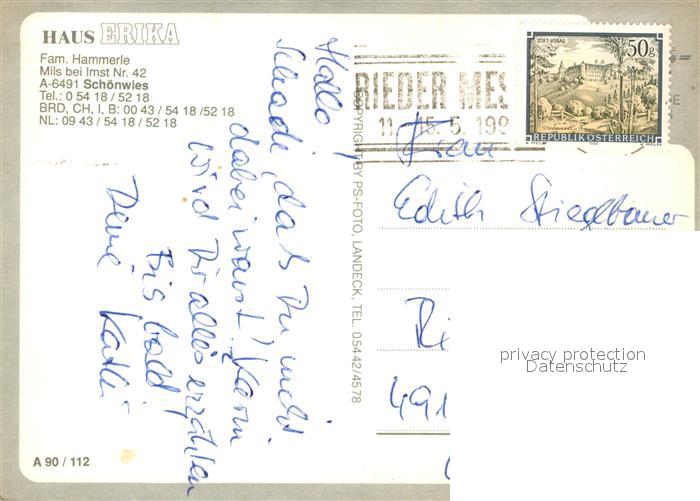 HAUS ERIKA
Fam. Hammerle
Mils bei Imst Nr. 42
A-6491 Schönwies
Tel.: 0 54 18 / 52 18
BRD, CH, I, B: 00 43 / 54 18 /52 18
NL: 09 43 / 54 18 / 52 18
Hallo
Schade, daß Du nicht
dabei warst! Karin
wird Dir alles erzählen
Bis bald!
Deine Kathi
A 90 / 112
COPYRIGHT BY PS-FOTO, LANDECK, TEL. 05442/4578
RIEDER MES
15. 5. 199
STIFT VORAU
50g
REPUBLIK ÖSTERREICH
Frau
Edith Stieglbauer
Ri
491
privacy protection
Datenschutz